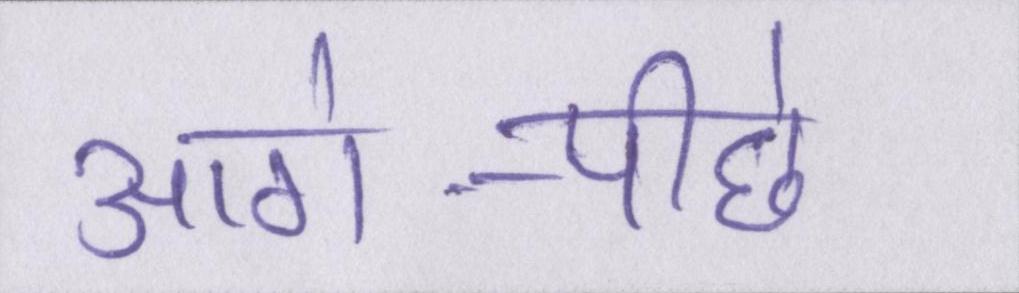 आगे-पीछे